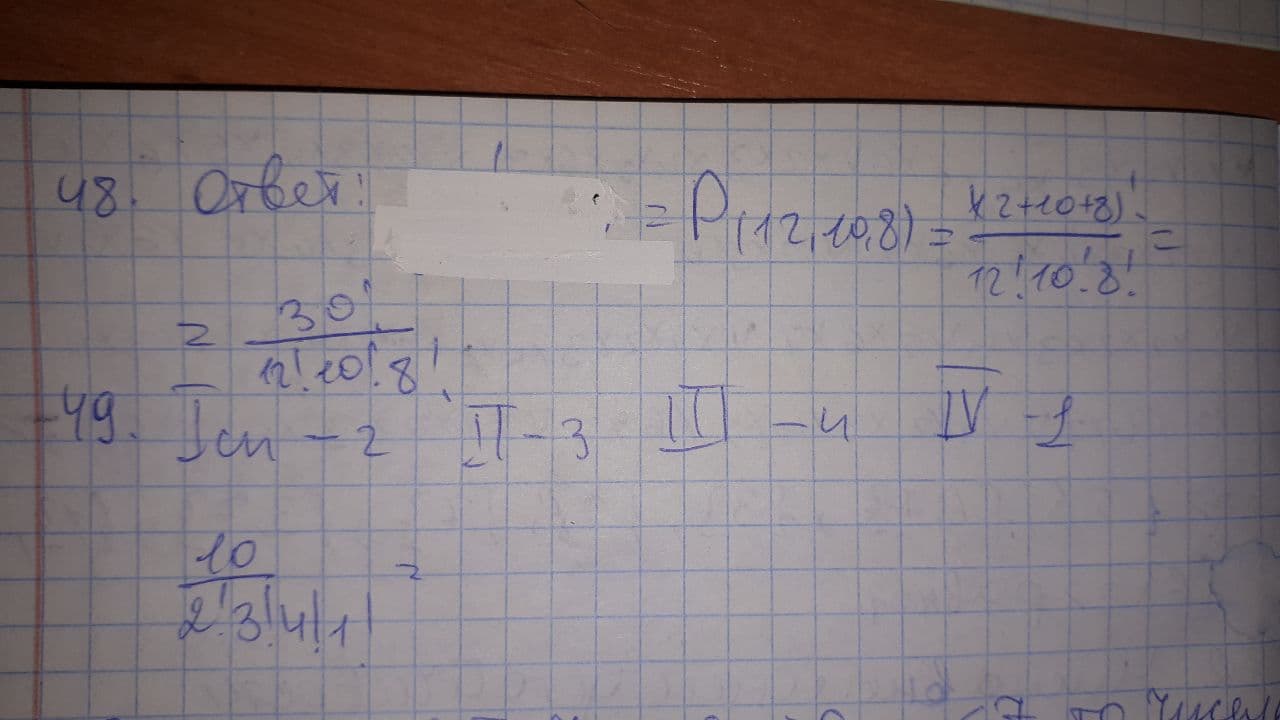 48. Ответ: = P(12,10,8) = (12+10+8)! / 12!10!8! =
= 30! / 12!10!8!
49. I сп - 2 II - 3 III - 4 IV - 1
10 / 2!3!4!1! =